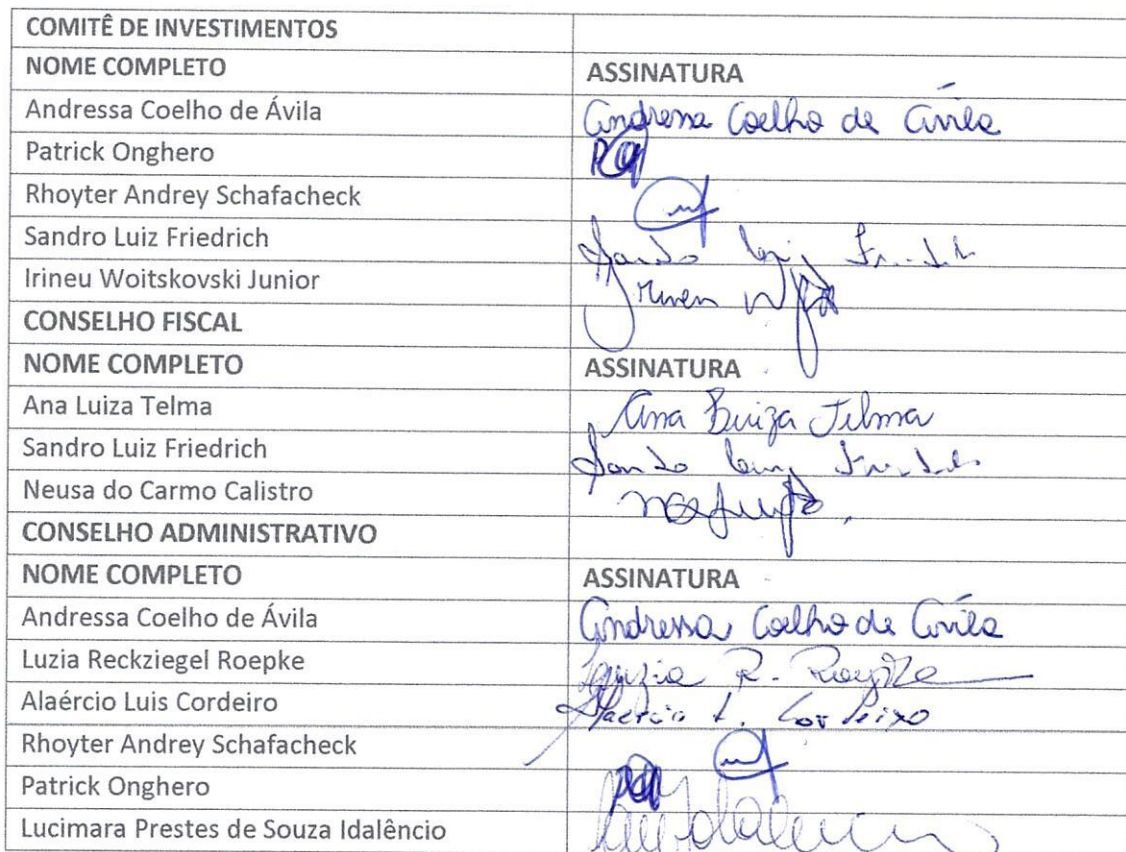 COMITÊ DE INVESTIMENTOS
NOME COMPLETO ASSINATURA
Andressa Coelho de Ávila Andressa Coelho de Ávila
Patrick Onghero
Rhoyter Andrey Schafacheck
Sandro Luiz Friedrich Sandro Luiz
Irineu Woitskovski Junior Irineu
CONSELHO FISCAL
NOME COMPLETO ASSINATURA
Ana Luiza Telma Ana Luiza Telma
Sandro Luiz Friedrich Sandro Luiz
Neusa do Carmo Calistro
CONSELHO ADMINISTRATIVO
NOME COMPLETO ASSINATURA
Andressa Coelho de Ávila Andressa Coelho de Ávila
Luzia Reckziegel Roepke Luzia R. Roepke
Alaércio Luis Cordeiro Alaércio L. Cordeiro
Rhoyter Andrey Schafacheck
Patrick Onghero
Lucimara Prestes de Souza Idalêncio